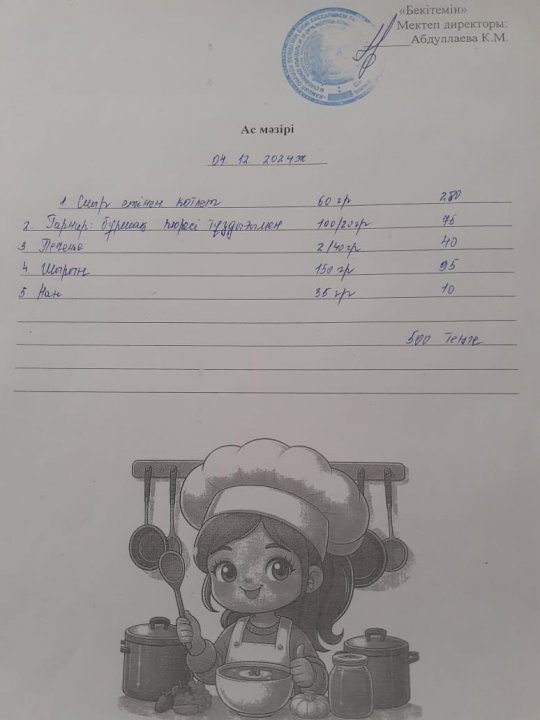 «Бекітемін»
Мектеп директоры:
Абдуллаева К.М.
Ас мәзірі
04 12 2024ж
1. Сиыр етінен котлет 60 гр 280
2. Гарнир: бұршақ пюресі тұздығымен 100/20гр 75
3 Печенье 2/40гр 40
4. Шырын 150 гр 95
5 Нан 35 гр 10
500 теңге